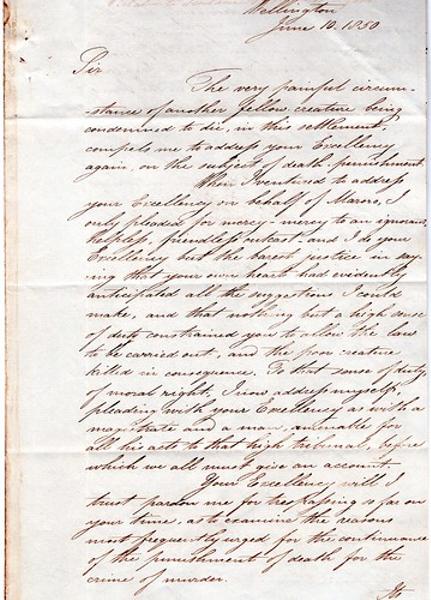 Wellington
June 10. 1850
Sir
The very painful circum-
-stance of another fellow creature being
condemned to die, in this settlement,
compels me to address your Excellency
again, on the subject of death punishment.
When I ventured to address
your Excellency on behalf of Maroro, I
only pleaded for mercy - mercy to an ignorant,
helpless, friendless outcast - and I do your
Excellency but the barest justice in say-
ing that your own heart had evidently
anticipated all the suggestions I could
make, and that nothing but a high sense
of duty constrained you to allow the law
to be carried out, and the poor creature
killed in consequence. To that sense of duty,
of moral right, I now address myself,
pleading with your Excellency as with a
magistrate and a man, amenable for
all his acts to that high tribunal, before
which we all must give an account.
Your Excellency will I
trust pardon me for trespassing so far on
your time, as to examine the reasons
most frequently urged for the continuance
of the punishment of death for the
crime of murder.
Its